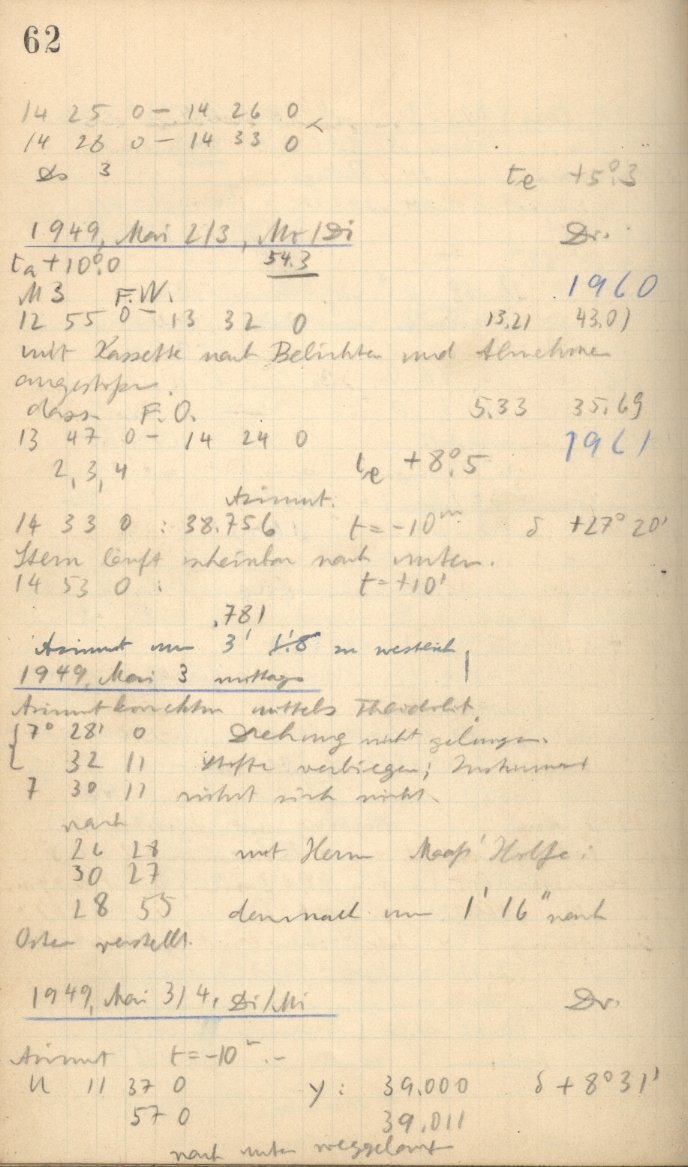 62
14 25 0 – 14 26 0
14 26 0 – 14 33 0
Ds 3 te +5°.3
1949, Mai 2/3, Mo/Di Dr.
ta +10°.0 54.3
M 3 F.W. 1960
12 55 0 – 13 32 0 13.21 43.01
mit Kassette nach Belichten und Abnehmen
angestoßen.
dass. F.O. 5.33 35.69
13 47 0 – 14 24 0 1961
2, 3, 4 te +8°.5
Azimut.
14 33 0 : 38.756 t = -10m δ +27° 20'
Stern läuft scheinbar nach unten.
14 53 0 : t = +10'
.781
Azimut um 3' 1'.8 zu westlich
1949, Mai 3 mittags
Azimutkorrektur mittels Theodolit.
7° 28' 0 Drehung nicht gelungen.
32 11 Stifte verbiegen; Instrument
7 30 11 rührt sich nicht.
nach
26 28 mit Herrn Maaß' Hilfe:
30 27
28 55 demnach um 1' 16" nach
Osten verstellt.
1949, Mai 3/4, Di/Mi Dr.
Azimut t = -10m
U 11 37 0 y : 39.000 δ + 8° 31'
57 0 39.011
nach unten weggelaufen